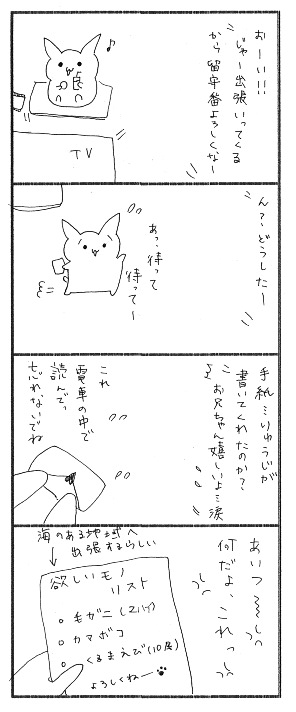 おーい!!!
じゃー出張いってくる
から留守番よろしくなー
♪
TV
ん?どうしたー
あっ、待って
待ってー
手紙…りゅうじが
書いてくれたのか?
お兄ちゃん嬉しいよ…涙
これ
電車の中で
読んで。
忘れないでね
あいつ〜〜っ
何だよ、これっ
海のある地域へ
出張するらしい
欲しいモノ
リスト
。毛ガニ(2ハイ)
。カマボコ
。くるまえび(10尾)
よろしくねー